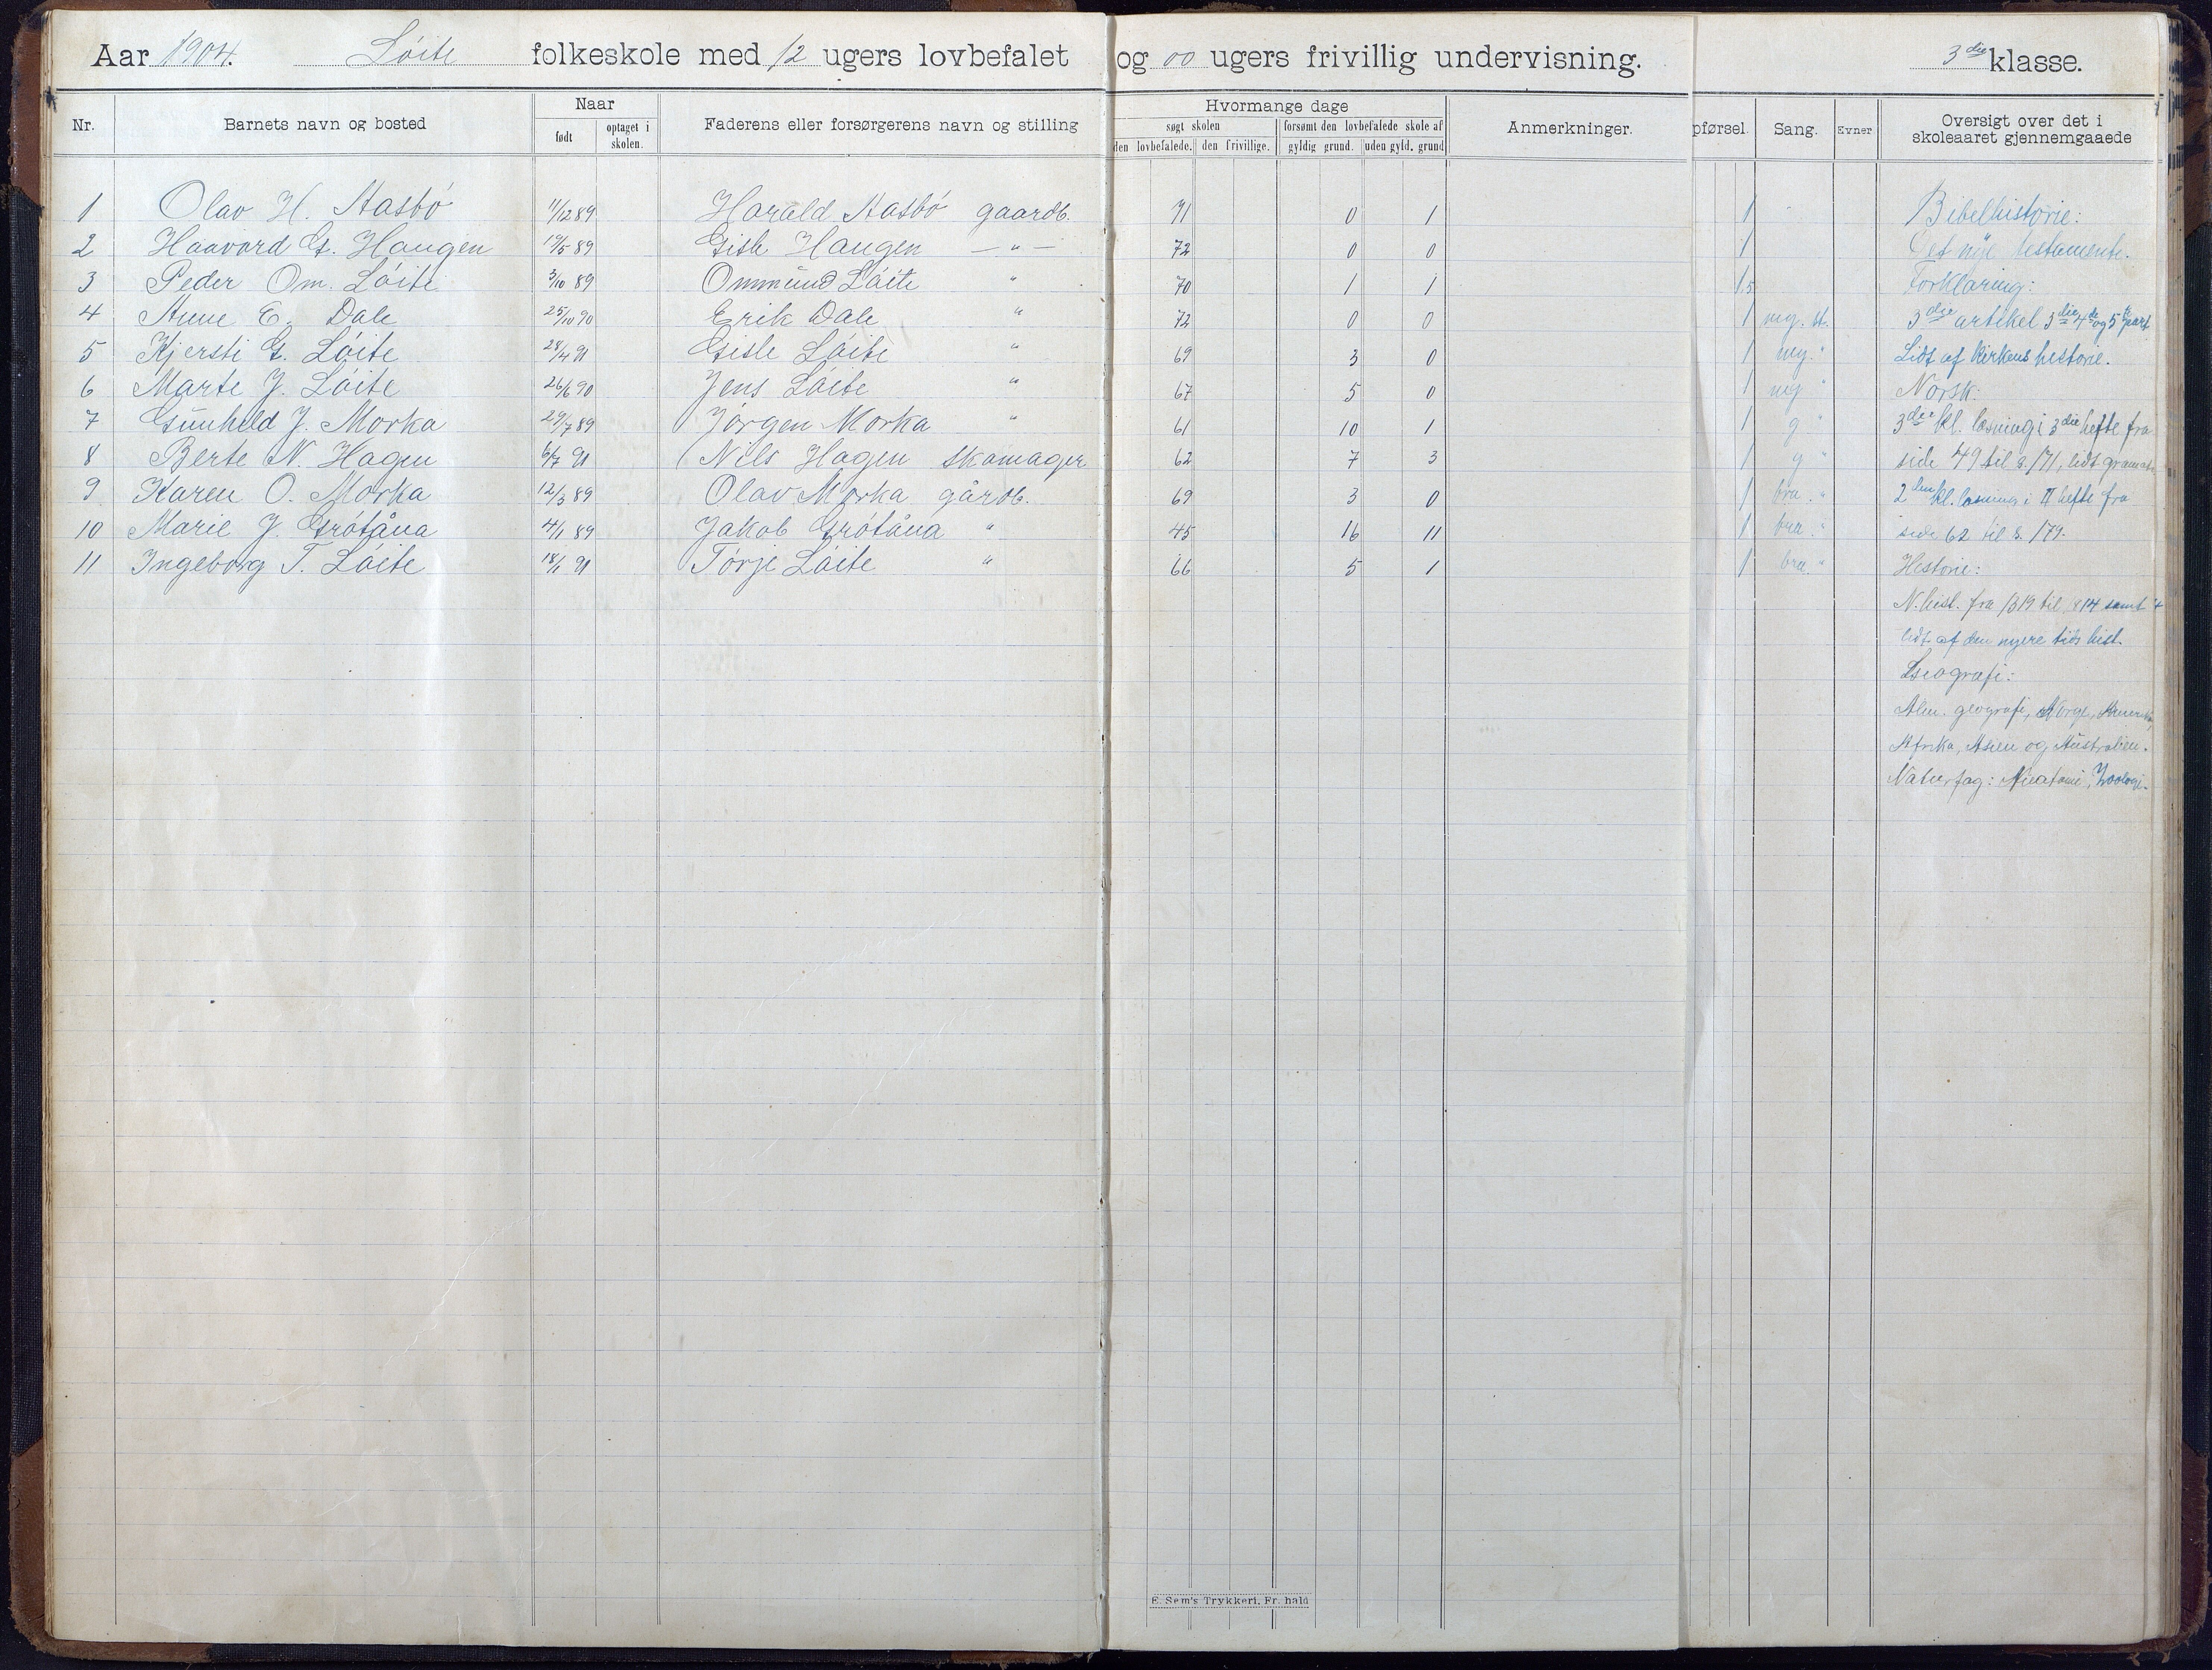 Aar 1904. Løite folkeskole med 12 ugers lovbefalet og 00 ugers frivillig undervisning. 3die klasse.
Nr. Barnets navn og bosted Naar født optaget i skolen. Faderens eller forsørgerens navn og stilling Hvormange dage søgt skolen den lovbefalede. den frivillige. forsømt den lovbefalede skole af gyldig grund. uden gyld. grund Anmerkninger. pførsel. Sang. Evner Oversigt over det i skoleaaret gjennemgaaede
1 Olav H. Aasbö 11/12 89 Harald Aasbö gaardb. 71 0 1 1 Bibelhistorie:
2 Haavard G. Haugen 19/5 89 Gisle Haugen — " — 72 0 0 1 Det nye testamente.
3 Peder Om. Löite 3/10 89 Ommund Löite " 70 1 1 1.5 Forklaring:
4 Anne E. Dale 25/10 90 Erik Dale " 72 0 0 1 mg. st. 3die artikel 3die 4de og 5te part
5 Kjersti G. Löite 28/4 91 Gisle Löite " 69 3 0 1 mg. " Lidt af kirkens historie.
6 Marte J. Löite 26/6 90 Jens Löite " 67 5 0 1 mg " Norsk:
7 Gunhild J. Morka 29/7 89 Jörgen Morka " 61 10 1 1 g " 3die kl. læsning i 3die hefte fra
8 Berte N. Hagen 6/7 91 Nils Hagen skomager 62 7 3 1 g " side 49 til s. 171, lidt gramat
9 Karen O. Morka 12/3 89 Olav Morka gårdb. 69 3 0 1 bra. " 2den kl. læsning i II hefte fra
10 Marie J. Grötåna 4/1 89 Jakob Grötåna " 45 16 11 1 bra. " side 62 til s. 179.
11 Ingeborg T. Löite 18/1 91 Törje Löite " 66 5 1 1 bra. " Historie:
N. hist. fra 1319 til 1814 samt
lidt af den nyere tids hist.
Geografi:
Alm. geografi, Norge, Amerika,
Afrika, Asien og Australien.
Naturfag: Anatomi, Zoologi.
E. Sem's Trykkeri, Fr. hald